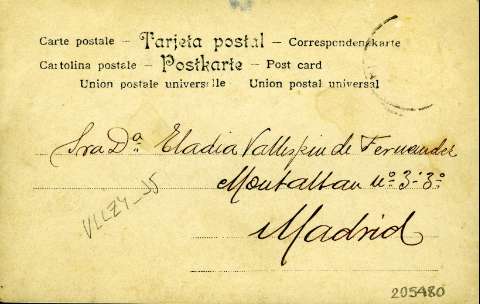 Carte postale – Tarjeta postal – Correspondenzkarte
Cartolina postale – Postkarte – Post card
Union postale universelle Union postal universal
Sra Dª Eladia Vallespin de Fernandez
Montalban nº 3-3º
Madrid
205480